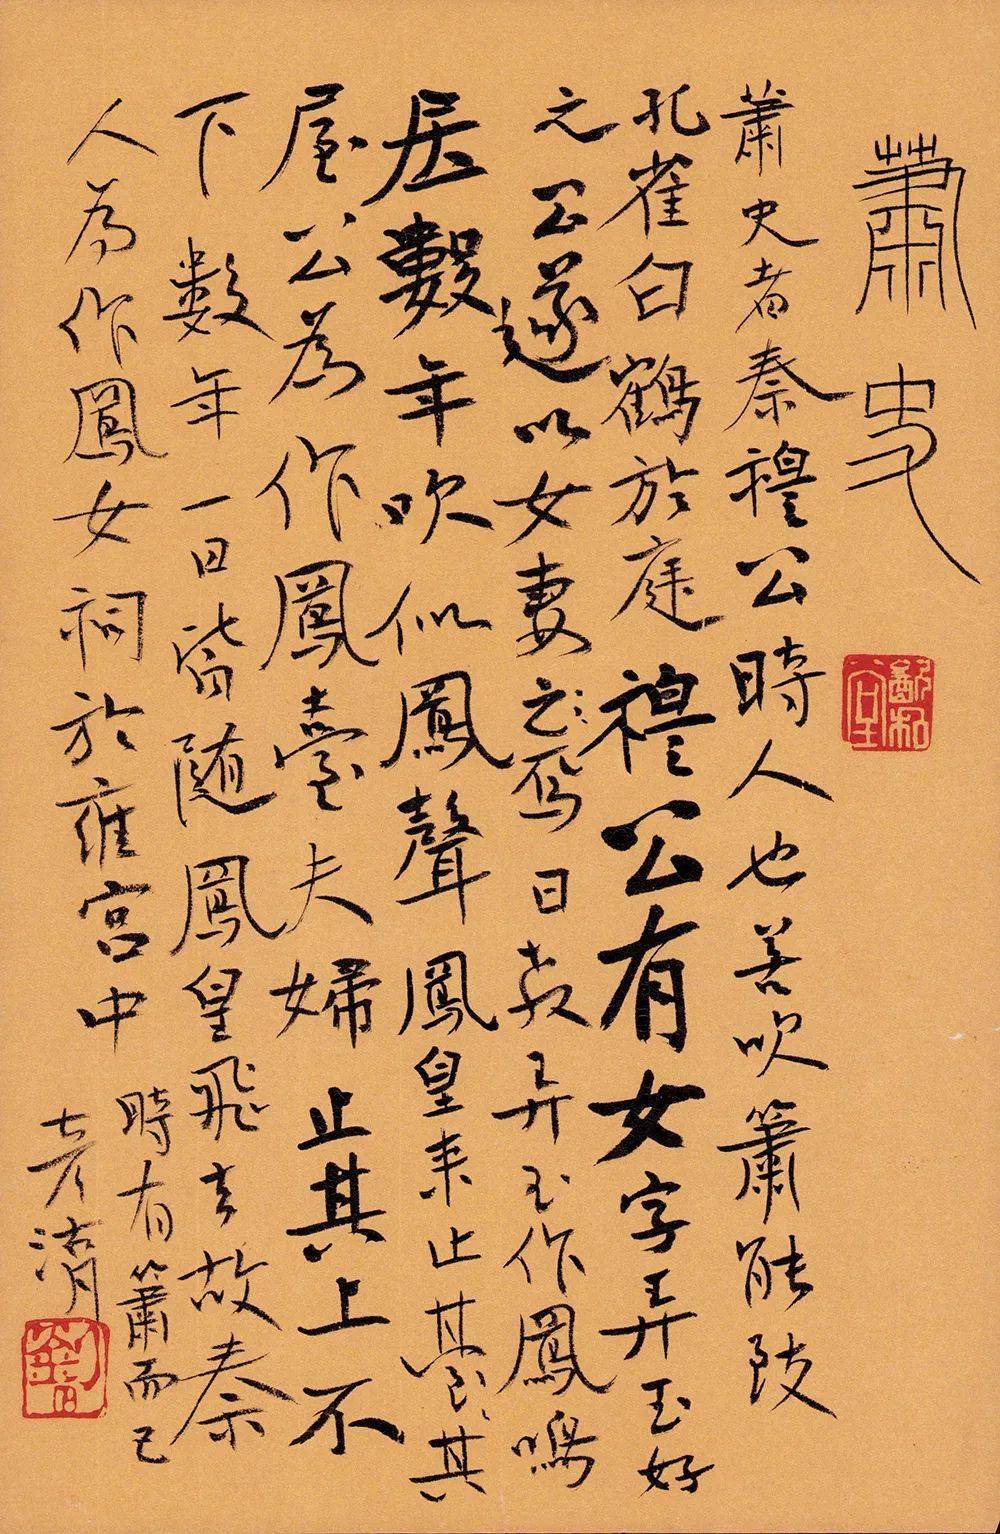 蕭史
蕭史者秦穆公時人也善吹簫能致
孔雀白鶴於庭穆公有女字弄玉好
之公遂以女妻之焉日教弄玉作鳳鳴
居數年吹似鳳聲鳳皇來止其其
屋公為作鳳臺夫婦止其上不
下數年一日皆随鳳皇飛去故秦
人為作鳳女祠於雍宮中
時有簫而已